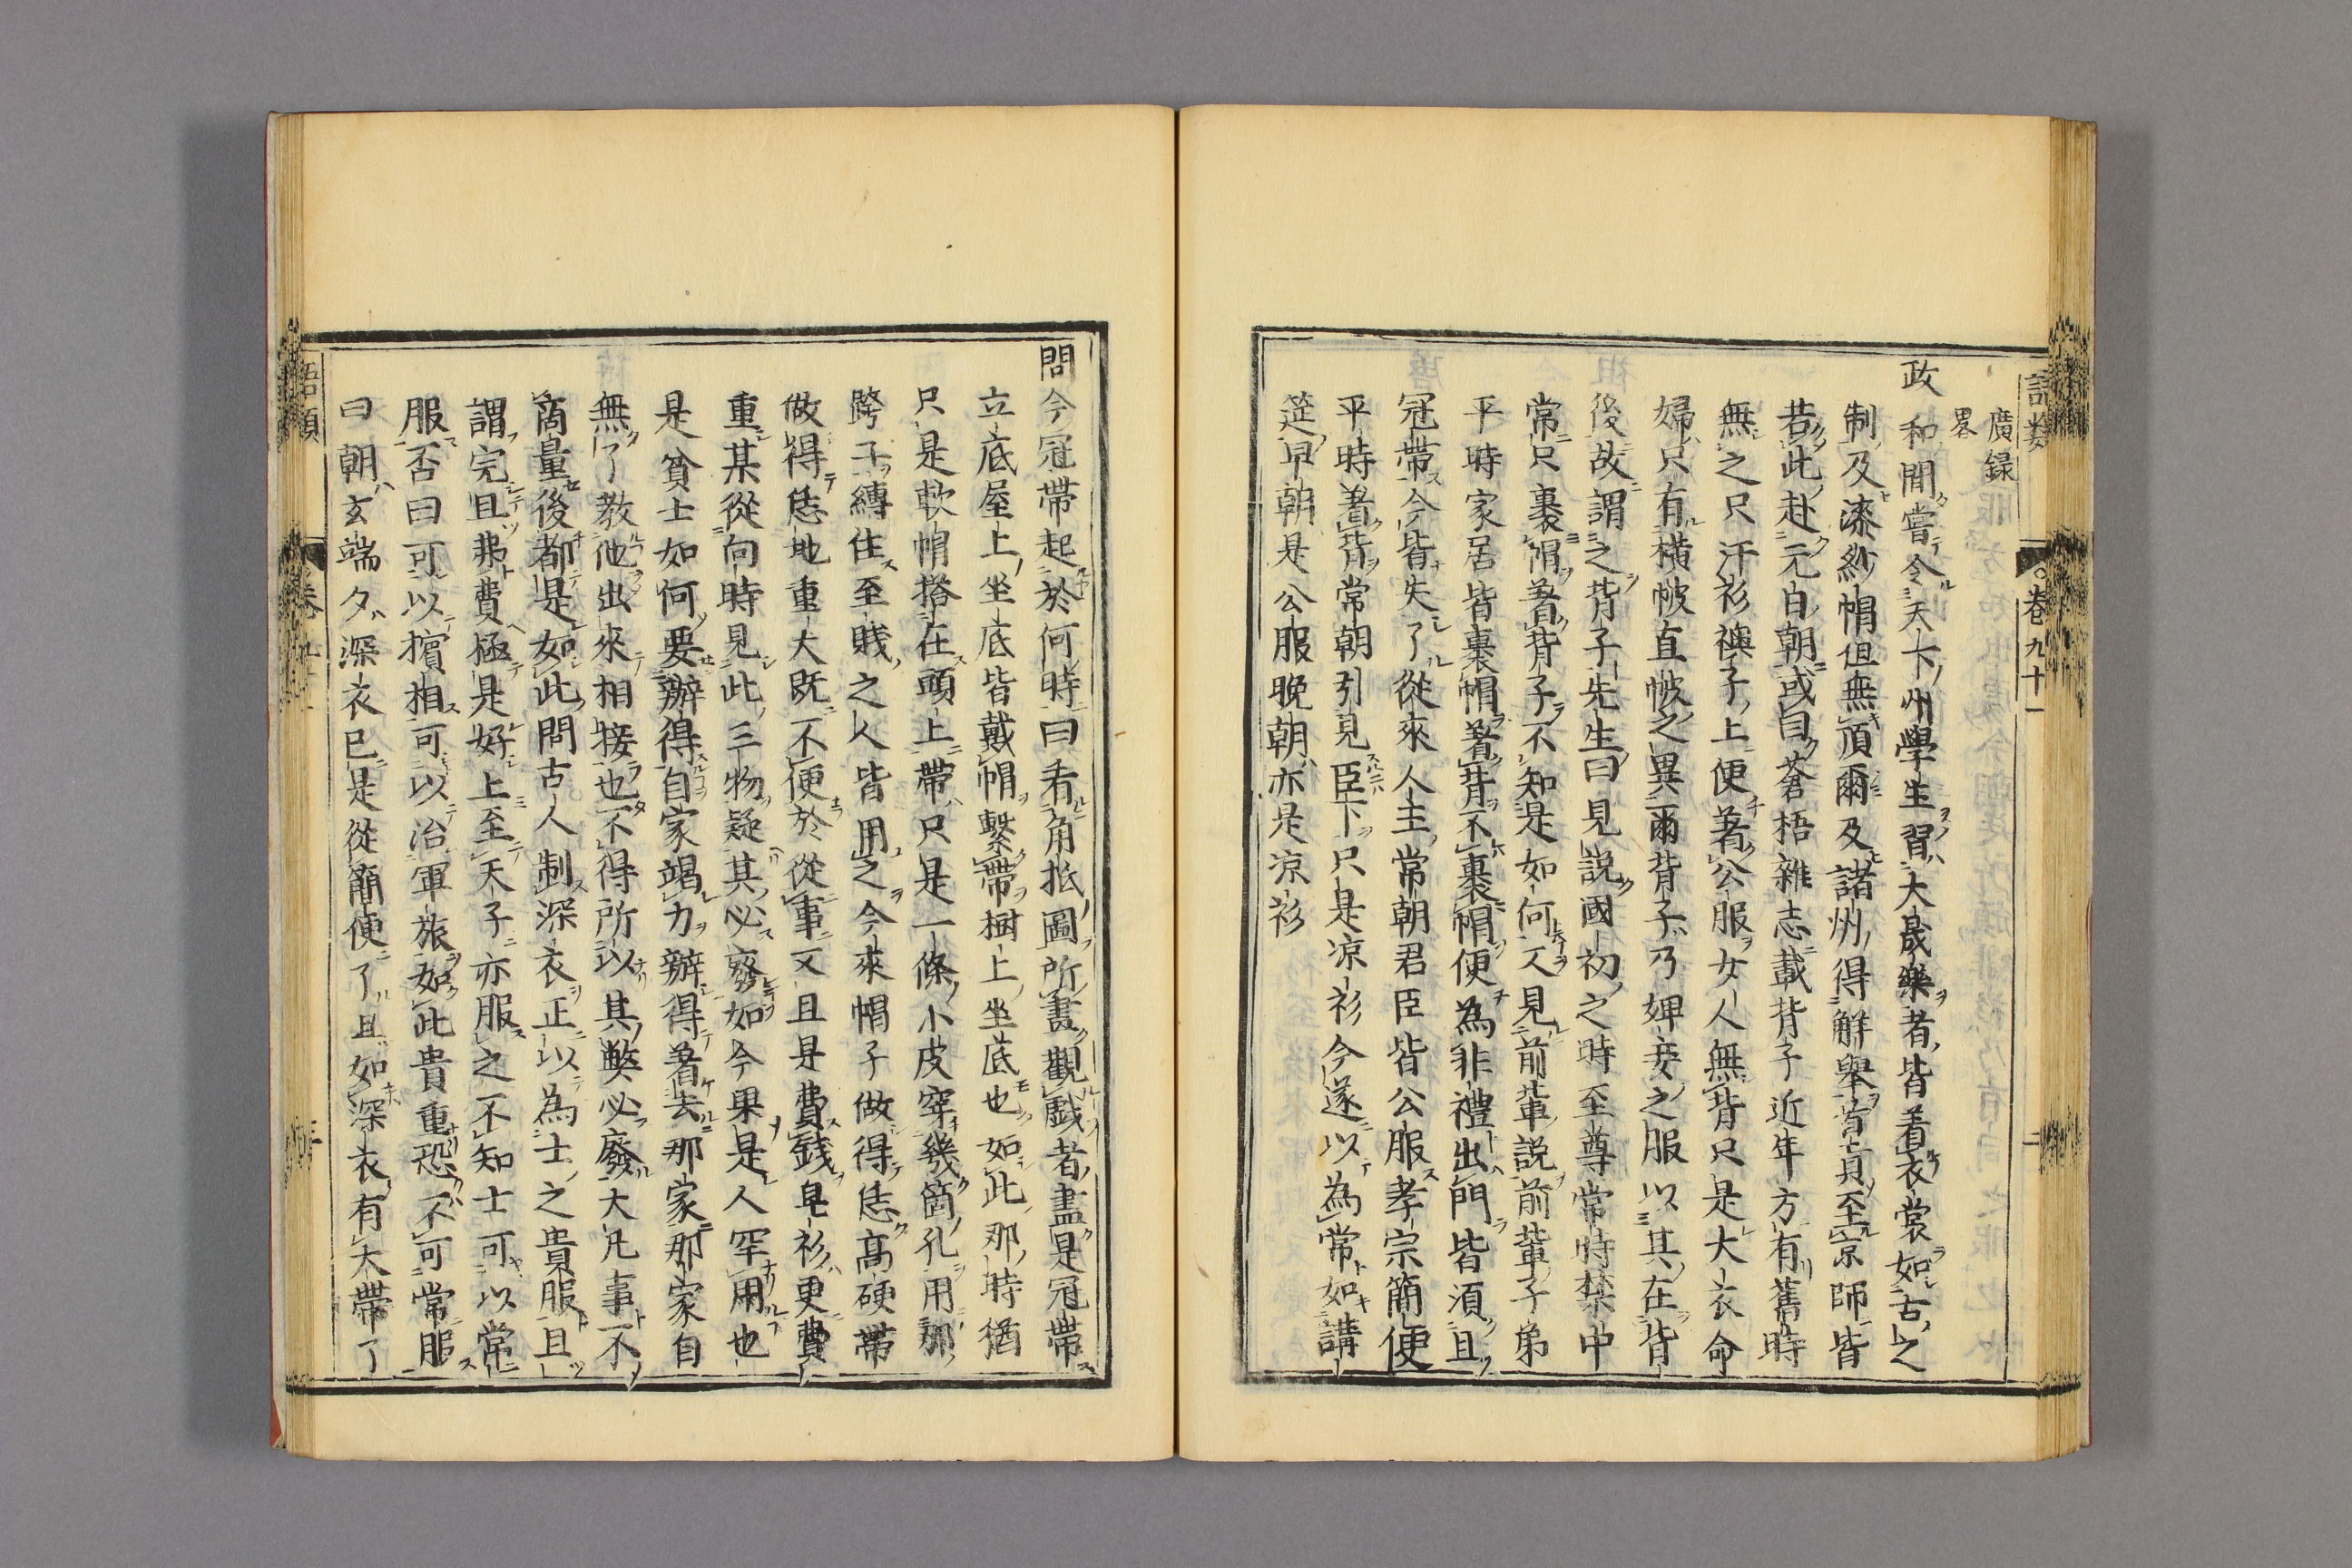 語類
卷九十一
二
廣録
畧
政和間嘗令天下州學生習大晟樂者皆着衣裳如古之
制及漆紗帽但無頂爾及諸州得解舉首貢至京師皆
若此赴元白朝或曰蒼梧雜志載背子近年方有舊時
無之只汗衫襖子上便著公服女人無背只是大衣命
婦只有横帔直帔之異爾背子乃婢妾之服以其在背
後故謂之背子先生曰見説國初之時至尊常時禁中
常只裹帽著背子不知是如何又見前輩説前輩子弟
平時家居皆裹帽著背不裹帽便為非禮出門皆須且
冠帶今皆失了從來人主常朝君臣皆公服孝宗簡便
平時著背常朝引見臣下只是凉衫今遂以為常如講
筵早朝是公服晚朝亦是凉衫
問今冠帶起於何時曰看角抵圖所畫觀戲者盡是冠帶
立底屋上坐底皆戴帽繫帶樹上坐底也如此那時猶
只是軟帽搭在頭上帶只是一條小皮穿幾箇孔用那
胯子縛住至賤之人皆用之今來帽子做得恁高硬帶
做得恁地重大既不便於從事又且是費錢皂衫更費
重某從向時見此三物疑其必廢如今果是人罕用也
是貧士如何要辦得自家竭力辦得著去那家那家自
無了教他出來相接也不得所以其弊必廢大凡事不
商量後都是如此問古人制深衣正以為士之貴服且
謂完且弗費極是好上至天子亦服之不知士可以常
服否曰可以擯相可以治軍旅如此貴重恐不可常服
曰朝玄端夕深衣已是從簡便了且如深衣有大帶了
語類
卷九
三